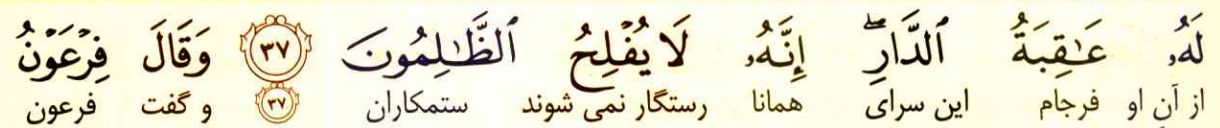 لَهُۥ عَـٰقِبَةُ ٱلدَّارِۖ إِنَّهُۥ لَا يُفْلِحُ ٱلظَّـٰلِمُونَ ٣٧ وَقَالَ فِرْعَوْنُ
از آن او فرجام این سرای همانا رستگار نمی شوند ستمکاران ۳۷ و گفت فرعون